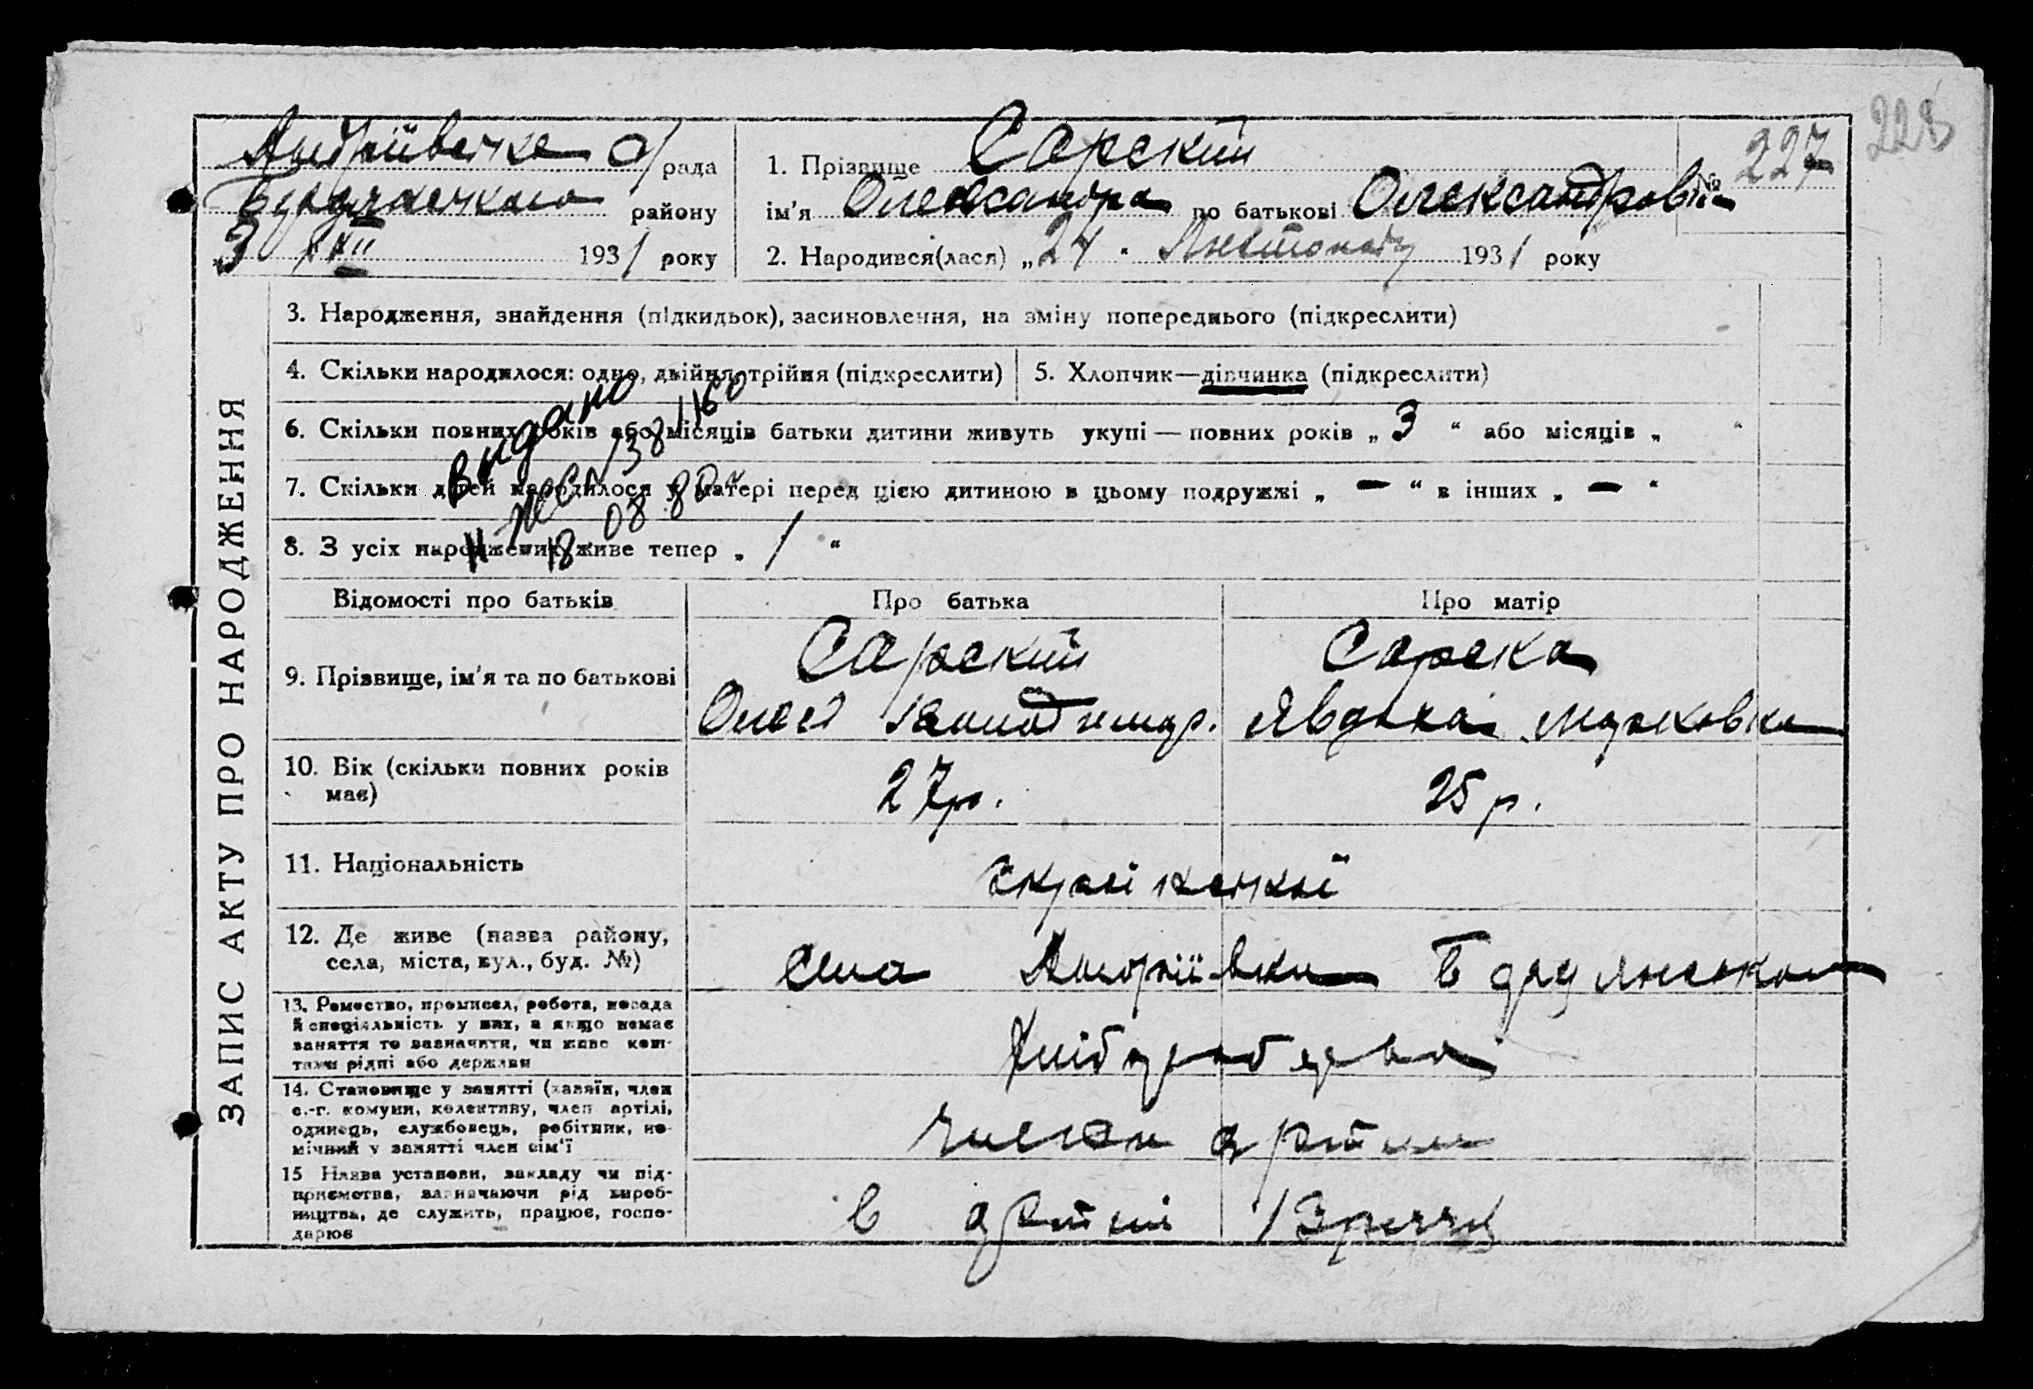 228
Андріївська с/рада
1. Прізвище Сарский
№ 227
Бердянського району
ім'я Олександра по батькові Олександровна
3 XII 1931 року
2. Народився(лася) „24" Листопаду 1931 року
ЗАПИС АКТУ ПРО НАРОДЖЕННЯ
3. Народження, знайдення (підкидьок), засиновлення, на зміну попереднього (підкреслити)
4. Скільки народилося: одно, двійня, трійня (підкреслити)
5. Хлопчик—дівчинка (підкреслити)
6. Скільки повних років або місяців батьки дитини живуть укупі — повних років „3" або місяців „ "
7. Скільки дітей народилося у матері перед цією дитиною в цьому подружжі „—" в інших „—"
8. З усіх народжених живе тепер „1"
видано
18.08.80
Відомості про батьків
Про батька
Про матір
9. Прізвище, ім'я та по батькові
Сарский
Сарска
Явдоха Марковна
10. Вік (скільки повних років
має)
27р.
25 р.
11. Національність
українські
12. Де живе (назва району,
села, міста, вул., буд. №)
село Андріївка Бердянського
13. Ремество, промисел, робота, посада
й спеціяльність у них, а якщо немає
заняття то зазначити, чи живе кош-
тами рідні або держави
Хлібороби
14. Становище у занятті (хазяїн, член
с.-г. комуни, колективу, член артілі,
одинець, службовець, робітник, по-
мічний у занятті член сім'ї
члени артили
15 Назва установи, закладу чи під-
приємства, зазначаючи рід вироб-
ництва, де служить, працює, госпо-
дарює
в артилі 13річчя